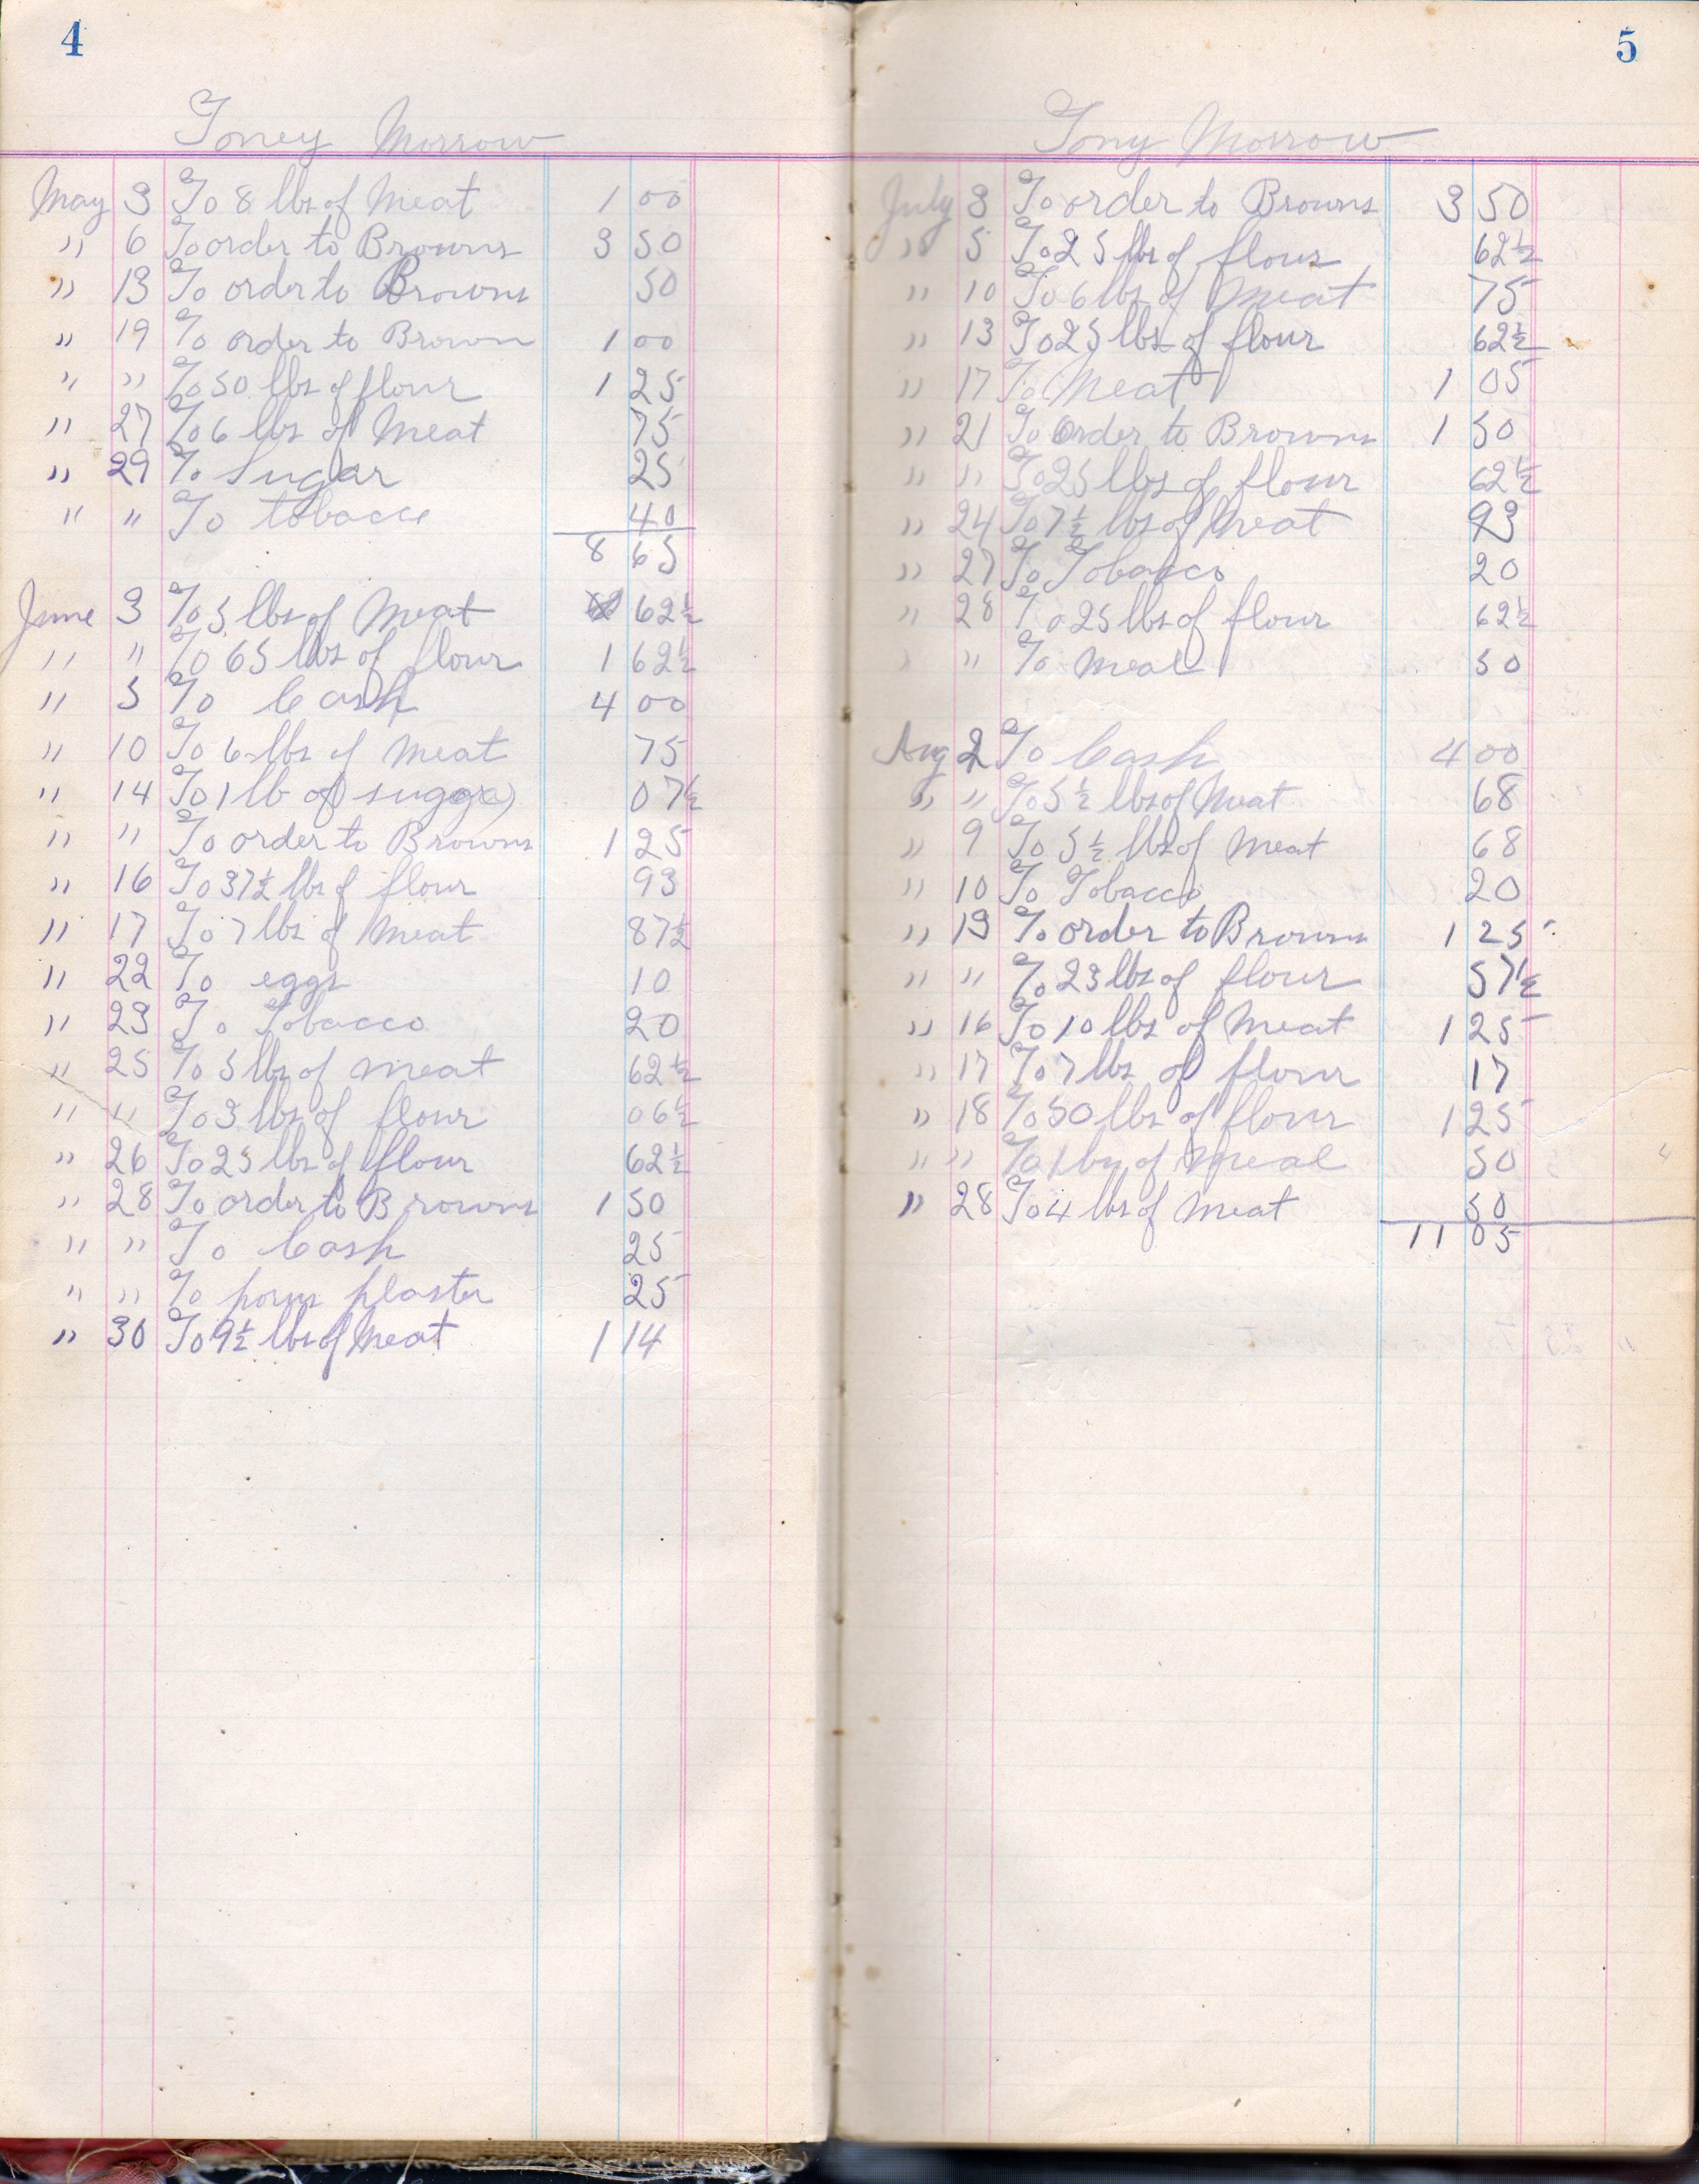 4
Toney Morrow
May 3 To 8 lbs of Meat 1 00
" 6 To order to Browns 3 50
" 13 To order to Browns 50
" 19 To order to Brown 1 00
" " To 50 lbs of flour 1 25
" 27 To 6 lbs of Meat 75
" 29 To Sugar 25
" " To tobacco 40
8 65
June 3 To 5 lbs of Meat 62½
" " To 65 lbs of flour 1 62½
" 5 To Cash 4 00
" 10 To 6 lbs of Meat 75
" 14 To 1 lb of suggar 07½
" " To order to Browns 1 25
" 16 To 37½ lbs of flour 93
" 17 To 7 lbs of Meat 87½
" 22 To eggs 10
" 23 To Tobacco 20
" 25 To 5 lbs of meat 62½
" " To 3 lbs of flour 06½
" 26 To 25 lbs of flour 62½
" 28 To order to Browns 1 50
" " To Cash 25
" " To porus plaster 25
" 30 To 9½ lbs of Meat 1 14
5
Tony Morrow
July 3 To order to Browns 3 50
" 5 To 25 lbs of flour 62½
" 10 To 6 lbs of Meat 75
" 13 To 25 lbs of flour 62½
" 17 To Meat 1 05
" 21 To order to Browns 1 50
" " To 25 lbs of flour 62½
" 24 To 7½ lbs of Meat 93
" 27 To Tobacco 20
" 28 To 25 lbs of flour 62½
" " To Meal 50
Aug 2 To Cash 4 00
" " To 5½ lbs of Meat 68
" 9 To 5½ lbs of Meat 68
" 10 To Tobacco 20
" 13 To order to Browns 1 25
" " To 23 lbs of flour 57½
" 16 To 10 lbs of Meat 1 25
" 17 To 7 lbs of flour 17
" 18 To 50 lbs of flour 1 25
" " To 1 bu of Meal 50
" 28 To 4 lbs of Meat 50
11 05